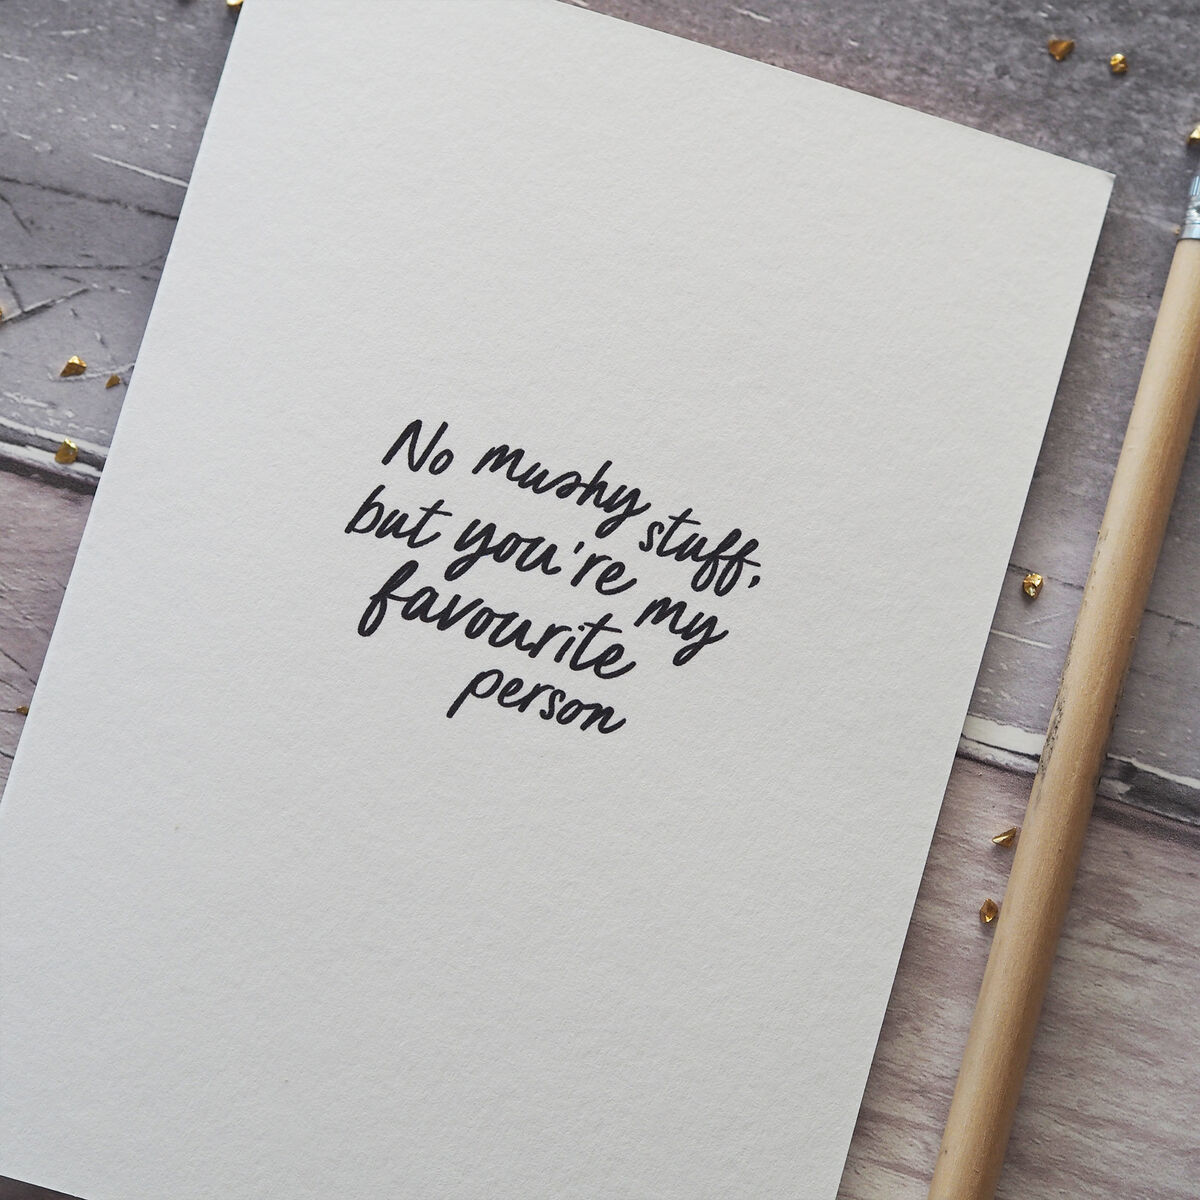 No mushy stuff,
but you're my
favourite
person